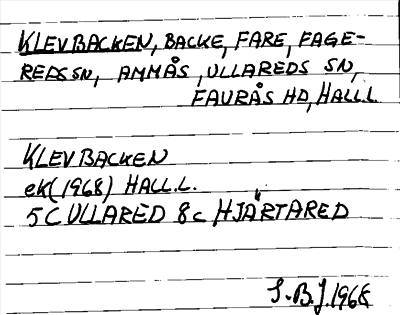 KLEVBACKEN, BACKE, FARE, FAGE-
REDS SN, AMMÅS, ULLAREDS SN,
FAURÅS HD, HALL.L
KLEVBACKEN
ek(1968) HALL.L.
5C ULLARED 8c HJÄRTARED
S.B.J. 1968